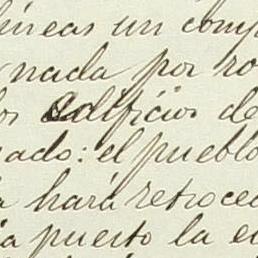 líneas un comp
nada por ro
os edificios de
ado: el pueblo
a hará retroce
ía puesto la e